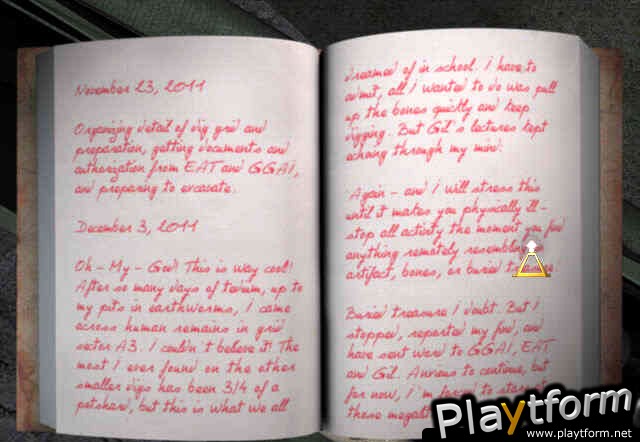 November 23, 2011
Organizing detail of dig grid and
preparation, getting documents and
authorization from EAT and GGAI,
and preparing to excavate.
December 3, 2011
Oh - My - God! This is way cool!
After so many days of tedium, up to
my pits in earthworms, I came
across human remains in grid
sector A3. I couldn't believe it! The
most I ever found on the other
smaller digs has been 3/4 of a
potshard, but this is what we all
dreamed of in school. I have to
admit, all I wanted to do was pull
up the bones quickly and keep
digging. But Gil's lectures kept
echoing through my mind:
"Again - and I will stress this
until it makes you physically ill -
stop all activity the moment you find
anything remotely resembling
artifact, bones, or buried
Buried treasure I doubt. But I
stopped, reported my find, and
have sent word to GGAI, EAT
and Gil. Anxious to continue, but
for now, I'm forced to stare at
these
Playtform
www.playtform.net